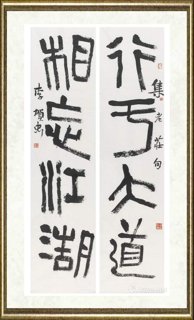 行于大道
集老莊句
相忘江湖
李